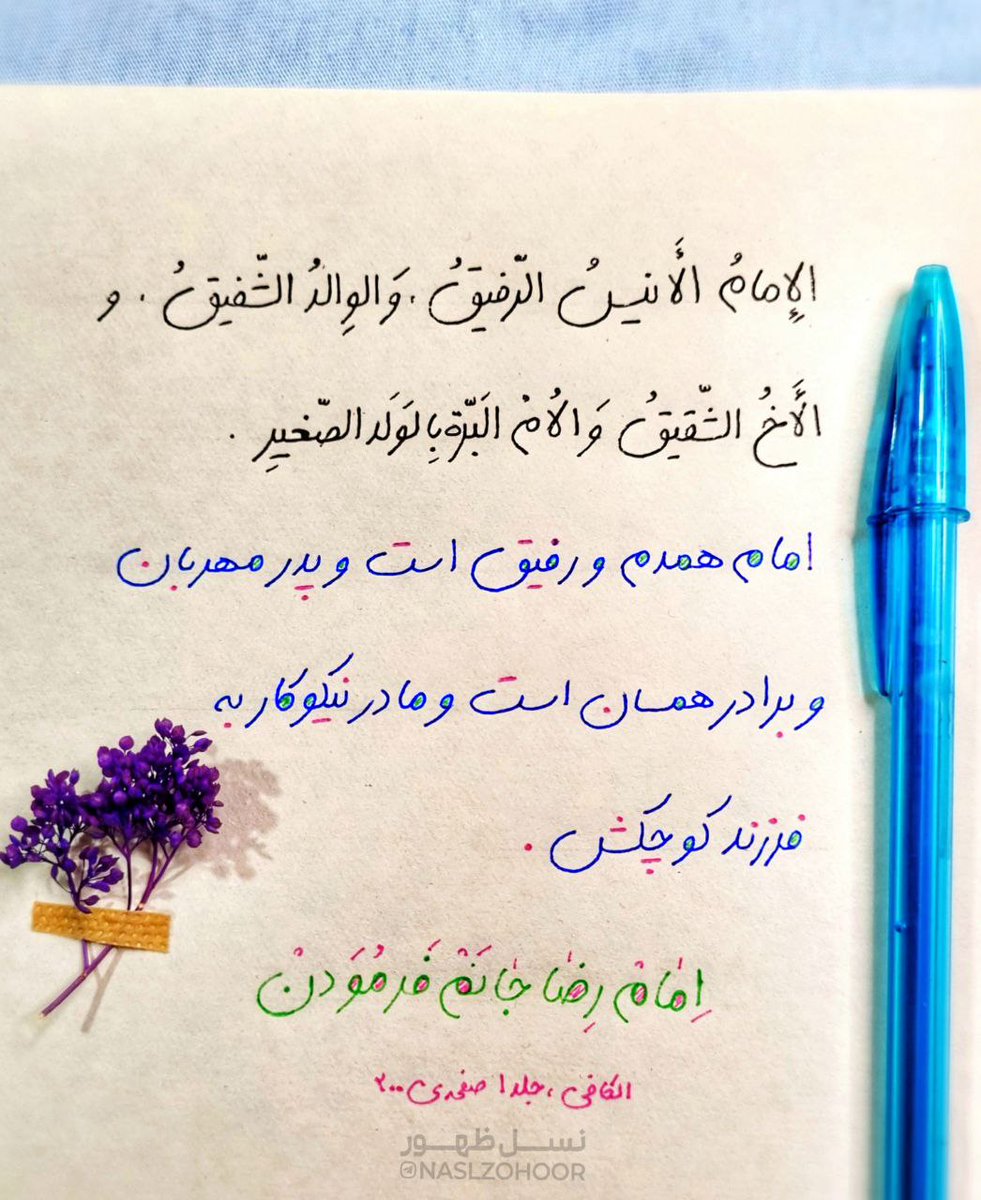 الإِمامُ الأَنیسُ الرّفیقُ ، وَ الوِالدُ الشّفیقُ . و
الأَخُ الشّقیقُ وَ الاُمْ البَرّة بِالوَلَد الصّغیرِ .
امام همدم و رفیق است و پدر مهربان
و برادر همسان است و مادر نیکوکار به
فرزند کوچکش .
اِمٰامْ رِضٰا جٰانَمْ فَرمُوَدن
الکافی ، جلد ۱ صفحه‌ی ۲۰۰
نسل ظهور
@NASLZOHOOR